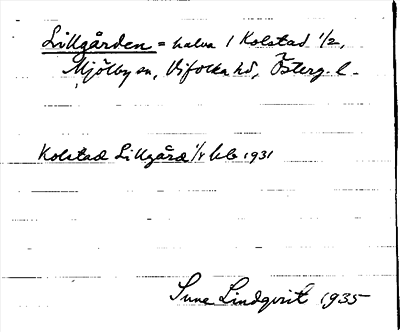 Lillgården = halva / Kolstad 1/2,
Mjölby sn, Vifolka hd, Österg. l.
Kolstad Lillgård 1/4 kb 1931
Sune Lindqvist 1935